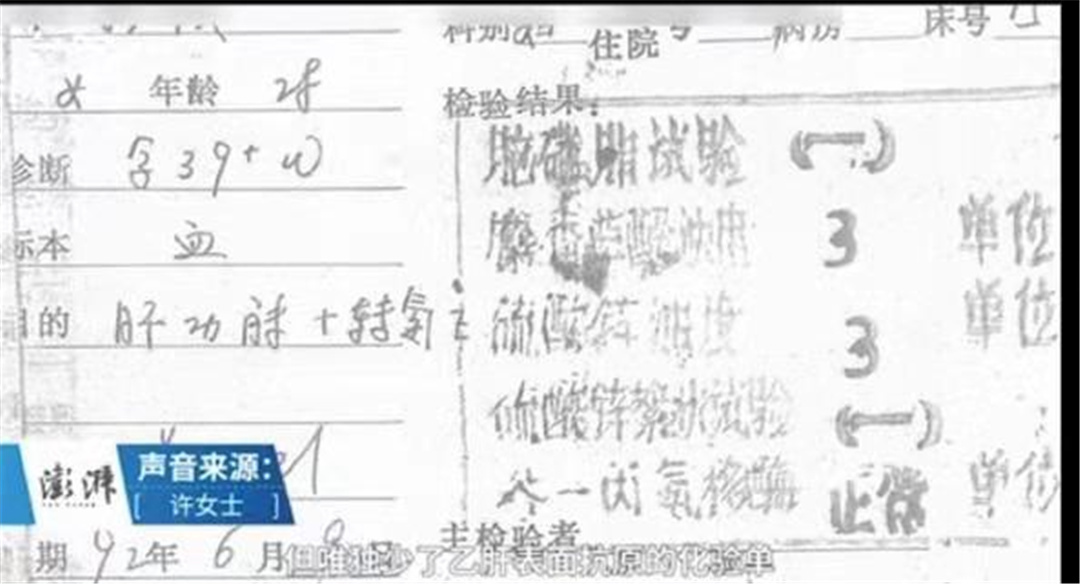 科别 住院号 病房 床号
女 年龄 28
诊断 孕39+W
标本 血
目的 肝功 + 转氨
检验结果:
脑磷脂试验 (一)
麝香草酚浊度 3 单位
硫酸锌浊度 3 单位
硫酸锌絮状试验 (一)
谷一丙氨移酶 正常 单位
主检验者
期 92年 6月 日
澎湃
声音来源:
[ 许女士 ]
但唯独少了乙肝表面抗原的化验单